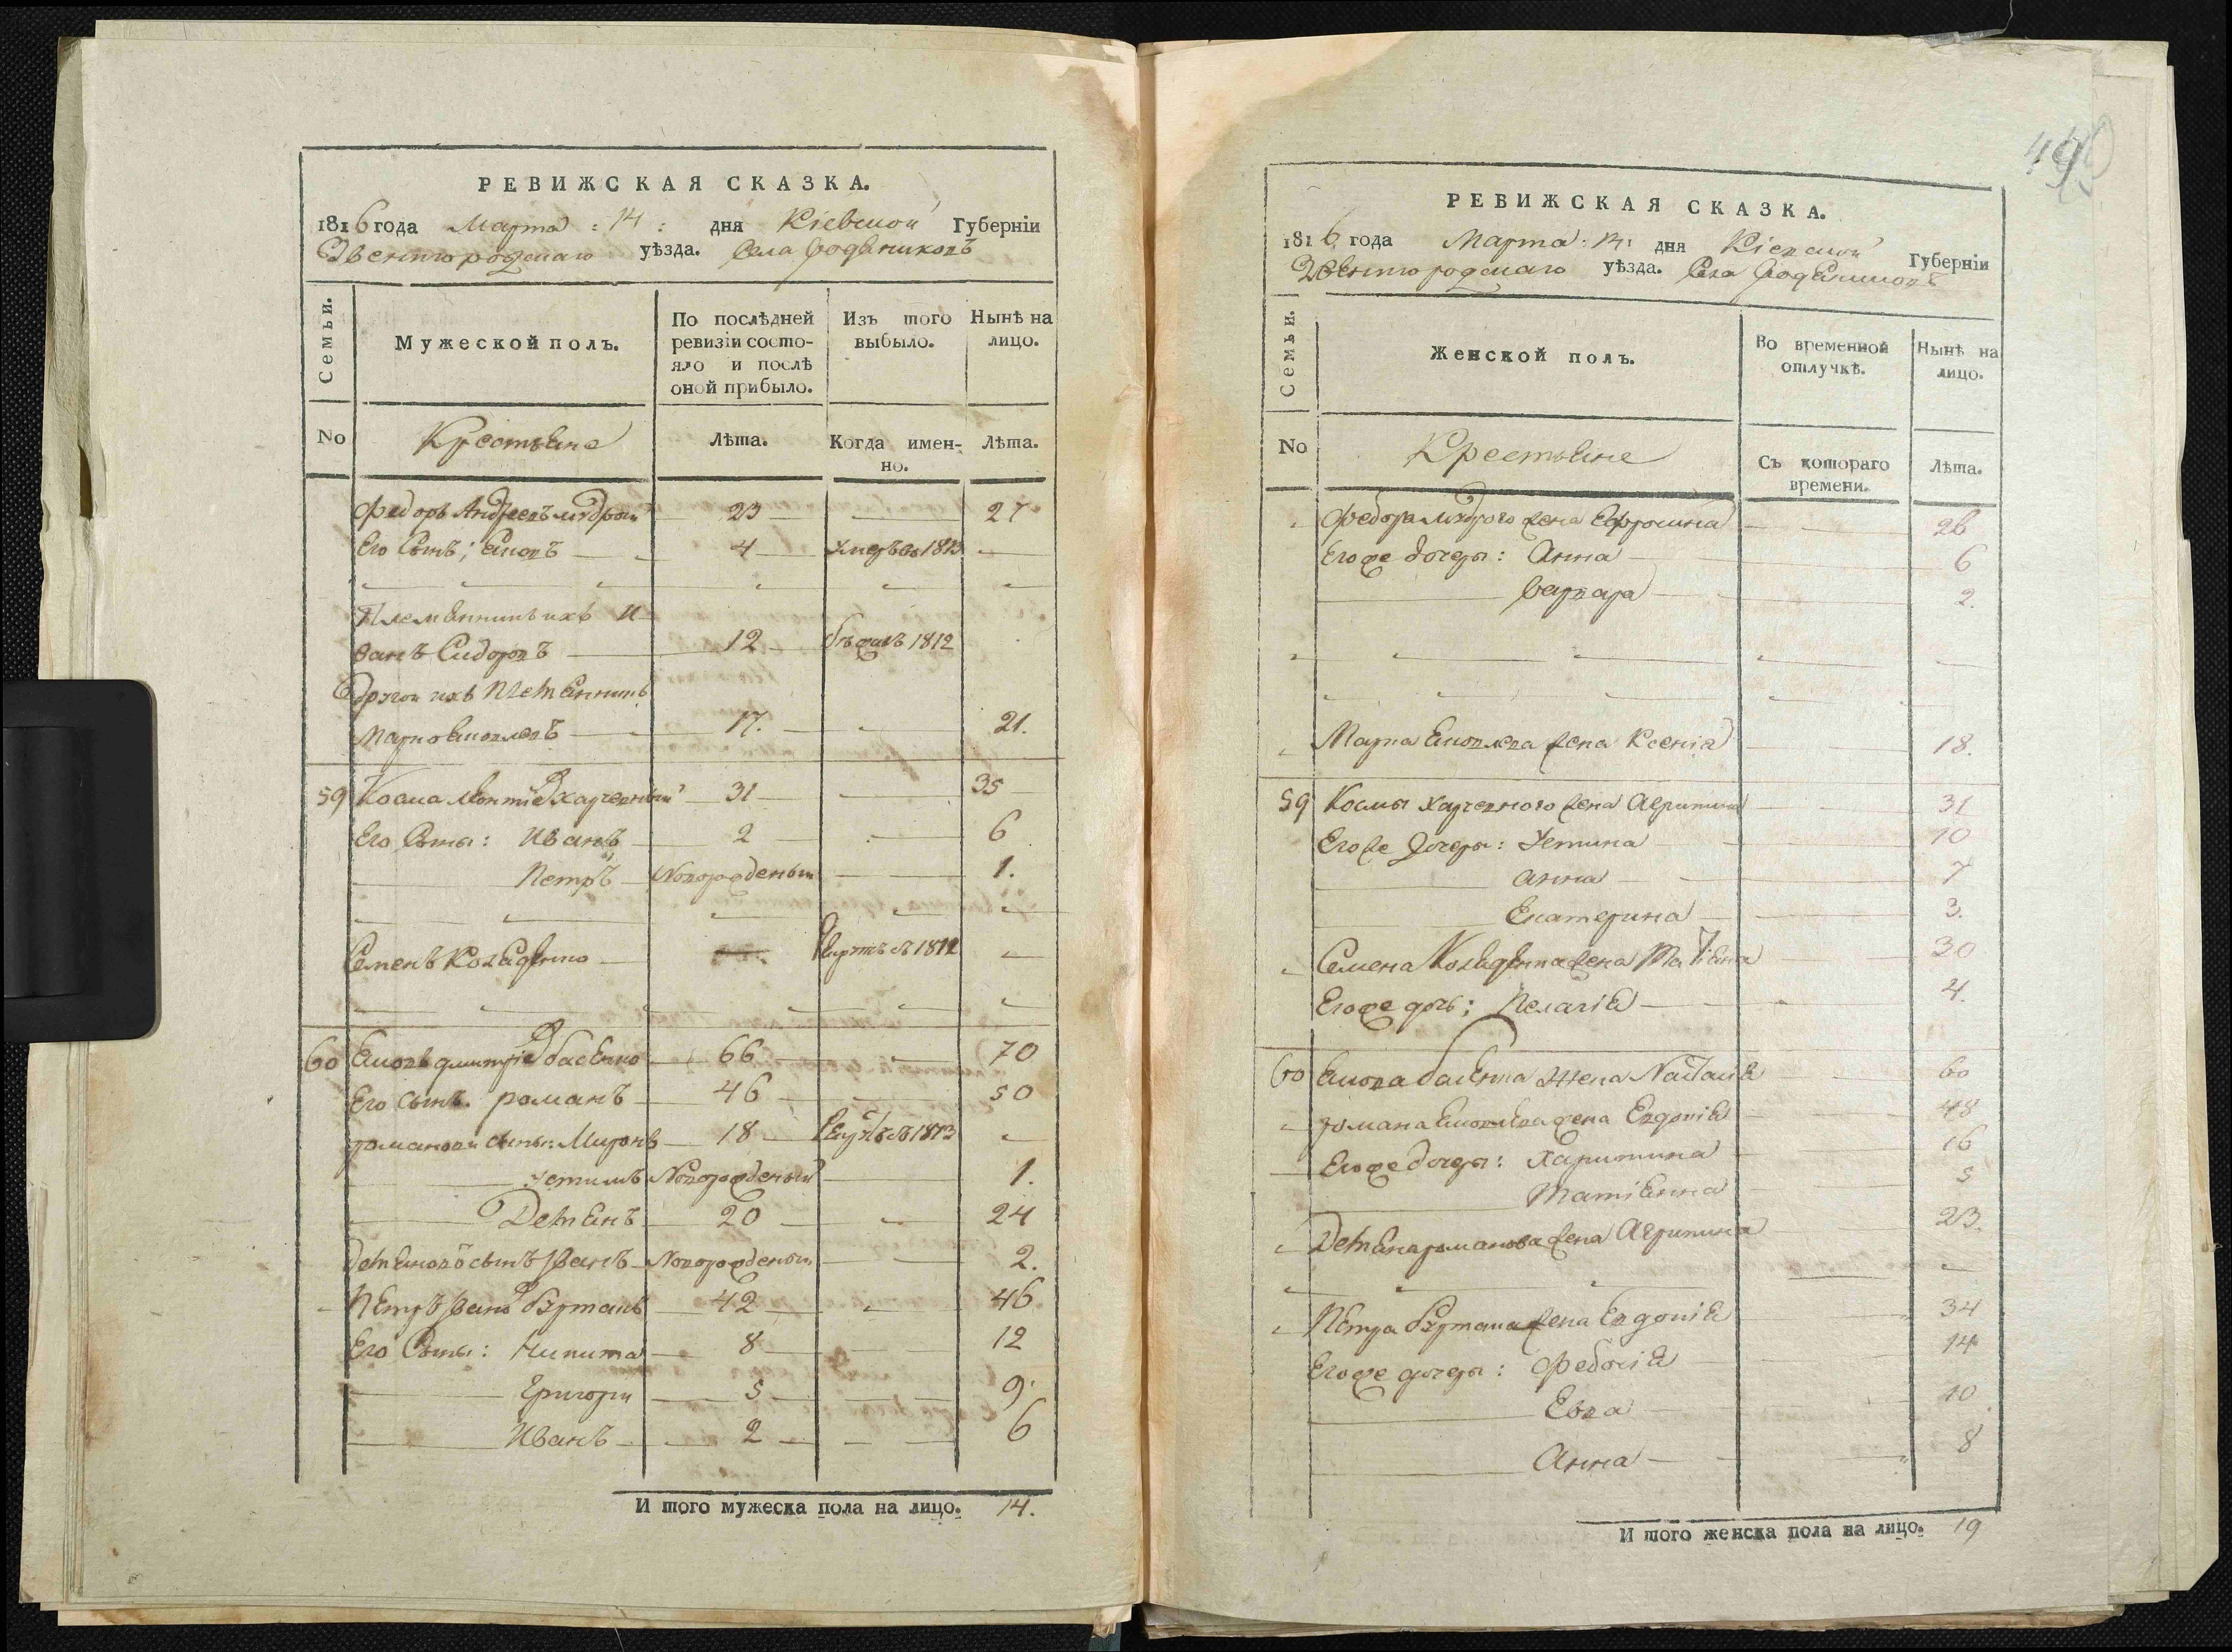 РЕВИЖСКАЯ СКАЗКА.
1816 года Марта: 14: дня Кіевской Губерніи
Звенигородскаго уѣзда. Села
Семьи.
Мужеской полъ.
По послѣдней ревизіи состояло и послѣ оной прибыло.
Изъ того выбыло.
Нынѣ на лицо.
No Крестьяне Лѣта. Когда именно. Лѣта.
Федоръ Андреевъ Мудрый 23 27
Его Сынъ; Яковъ 4 умеръ въ 1813
Племянникъ ихъ И
ванъ Сидоровъ 12 бѣжалъ 1812
Другой ихъ Племянникъ
Марко Яковлевъ 17. 21.
59 Косма Леонтіев Харченный 31 35
Его Сыны: Иванъ 2 6
Петръ Новорожденый 1.
Семенъ Коляденко въ 1812
60 Яковъ Дмитріев Басенко 66 70
Его сынъ. романъ 46 50
романови сыны: Миронъ 18 въ 1813
Устимъ Новорожденый 1.
Демянъ 20 24
Демяновъ сынъ Иванъ Новорожденый 2.
Петръ Иванов Бурманъ 42 46
Его Сыны: Никита 8 12
Григори 5 9.
Иванъ 2 6
И того мужеска пола на лицо. 14.
РЕВИЖСКАЯ СКАЗКА.
1816 года Марта: 14: дня Кіевской Губерніи
Звенигородскаго уѣзда. Села
Семьи.
Женской полъ.
Во временной отлучкѣ.
Нынѣ на лицо.
No Крестьяне Съ котораго времени. Лѣта.
Федора Мудрого жена Ефросина 26
Егоже дочеры: Анна 6
Варвара 2.
Марка Яковлева жена Ксенія 18.
59 Космы Харченного жена Агрипина 31
Егоже Дочеры: Устина 10
анна 7
Екатерина 3.
Семена Коляденка жена Татіяна 30
Егоже дочь; Пелагія 4.
60 Якова Басенка Жена Настасія 60
романа Яковлева жена Евдокія 48
Егоже дочеры: Харитина 16
Татіянна 5
Демяна романова жена Агрипина 23.
Петра Бурмана жена Евдокія 34
Егоже дочеры: Федосія 14
Евва 10
Анна 8
И того женска пола на лицо. 19